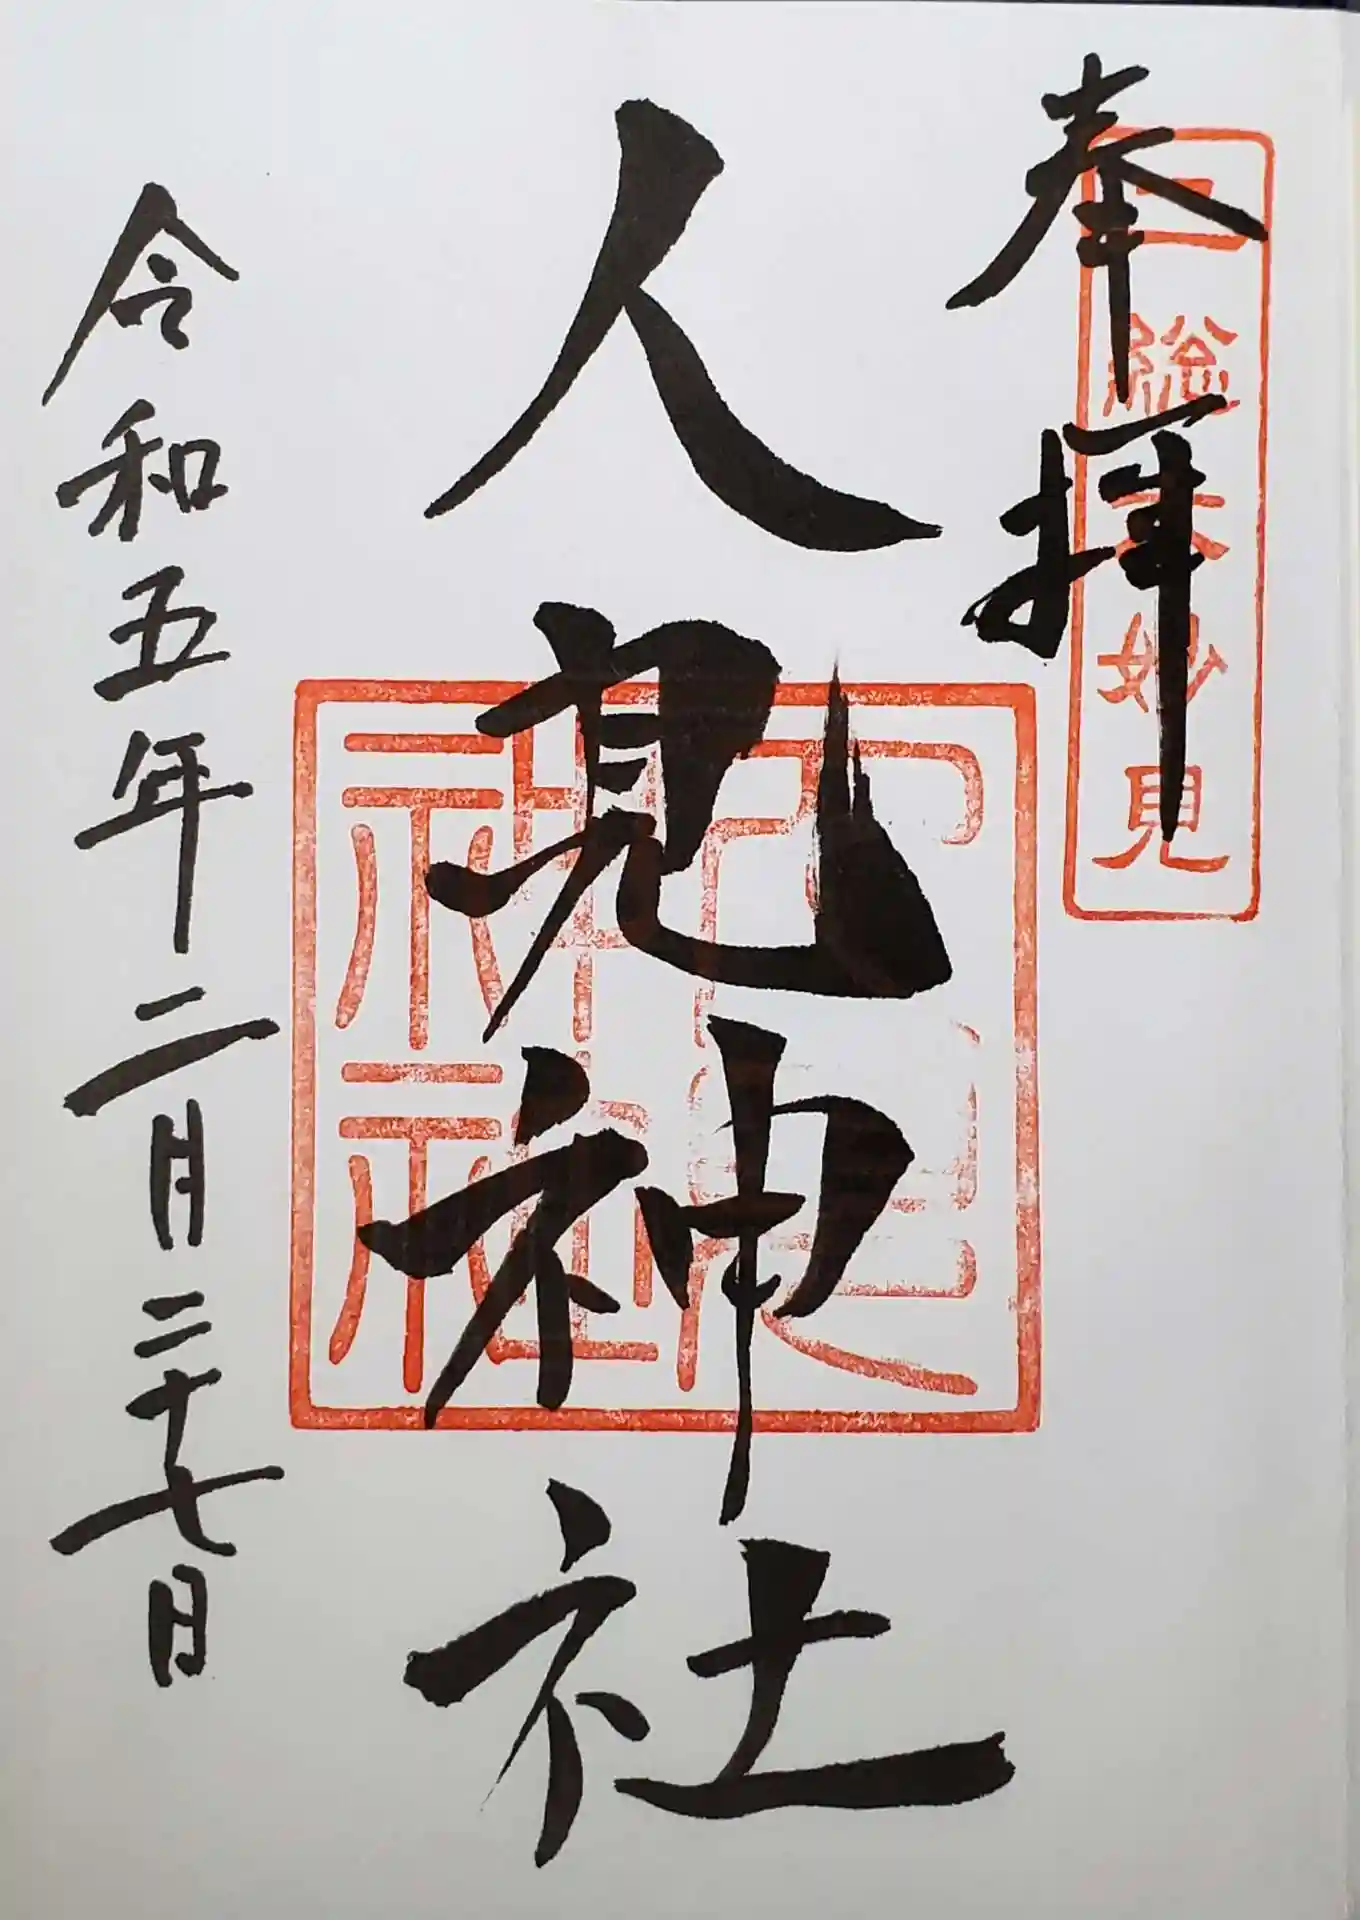 奉拝
二総六妙見
人見神社
人見神社
令和五年二月二十七日